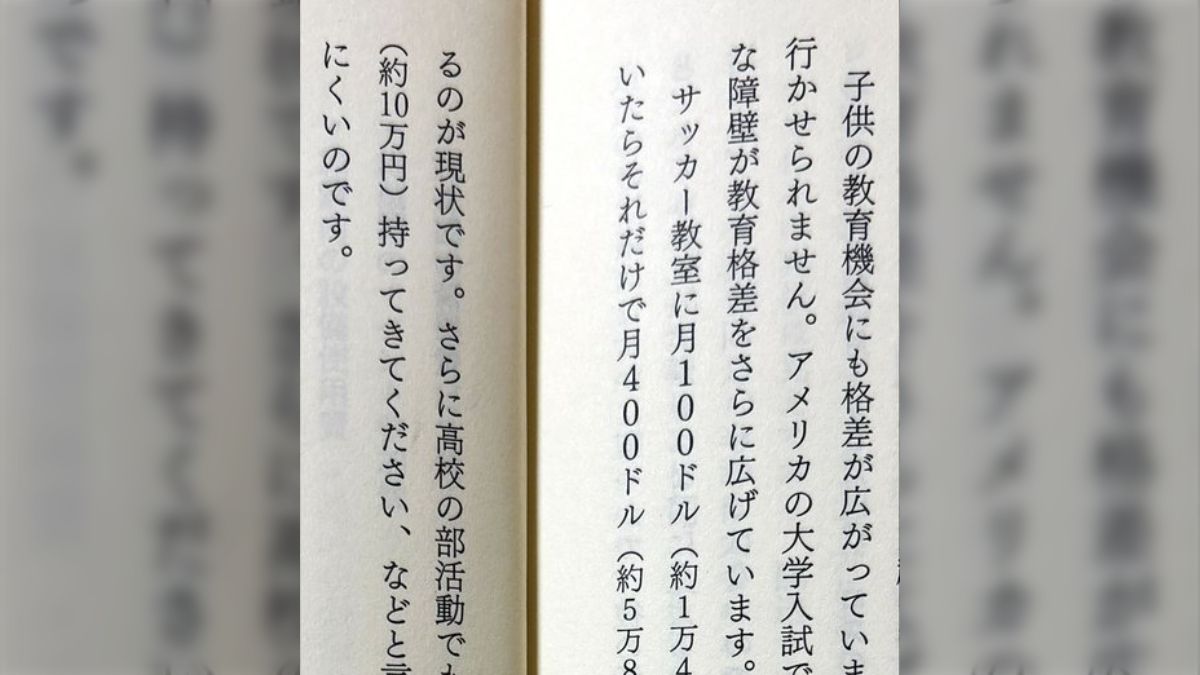 子供の教育機会にも格差が広がっていま
行かせられません。アメリカの大学入試で
な障壁が教育格差をさらに広げています。
サッカー教室に月100ドル(約1万4
いたらそれだけで月400ドル(約5万8
るのが現状です。さらに高校の部活動でも
(約10万円)持ってきてください、などと言
にくいのです。